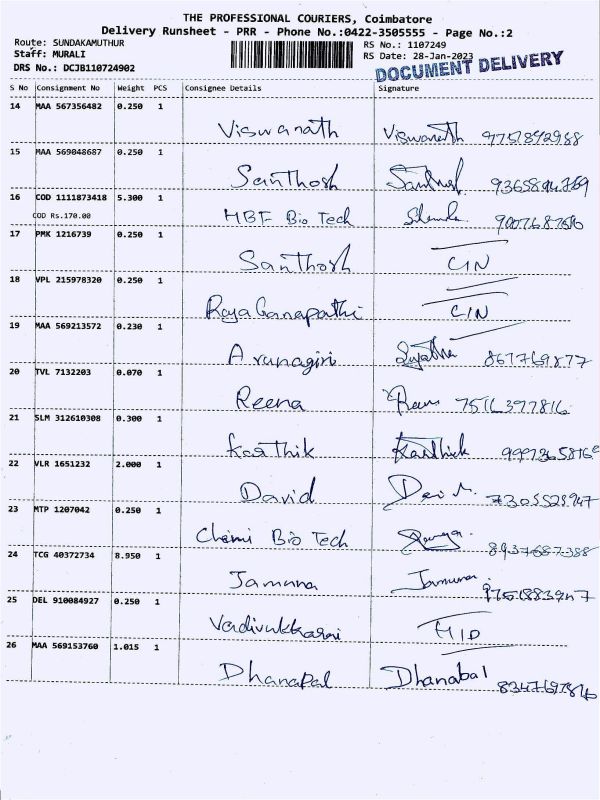 THE PROFESSIONAL COURIERS, Coimbatore
Delivery Runsheet - PRR - Phone No.:0422-3505555 - Page No.:2
Route: SUNDAKAMUTHUR RS No.: 1107249
Staff: MURALI RS Date: 28-Jan-2023
DRS No.: DCJB110724902 DOCUMENT DELIVERY
S No Consignment No Weight PCS Consignee Details Signature
14 MAA 567356482 0.250 1
Viswanath Viswanath 9751892988
15 MAA 569048687 0.250 1
Santhosh
16 COD 1111873418 5.300 1
COD Rs.170.00 MBF Bio Tech
17 PMK 1216739 0.250 1
Santhosh CIN
18 VPL 215978320 0.250 1
Raja Ganapathi CIN
19 MAA 569213572 0.230 1
Arunagiri Sujatha 861769877
20 TVL 7132203 0.070 1
Reena
21 SLM 312610308 0.300 1
Karthik Karthick
22 VLR 1651232 2.000 1
David
23 MTP 1207042 0.250 1
Chemi Bio Tech 8937687388
24 TCG 40372734 8.950 1
Jamuna Jamuna
25 DEL 910084927 0.250 1
Vadivukkarasi HID
26 MAA 569153760 1.015 1
Dhanapal Dhanabal